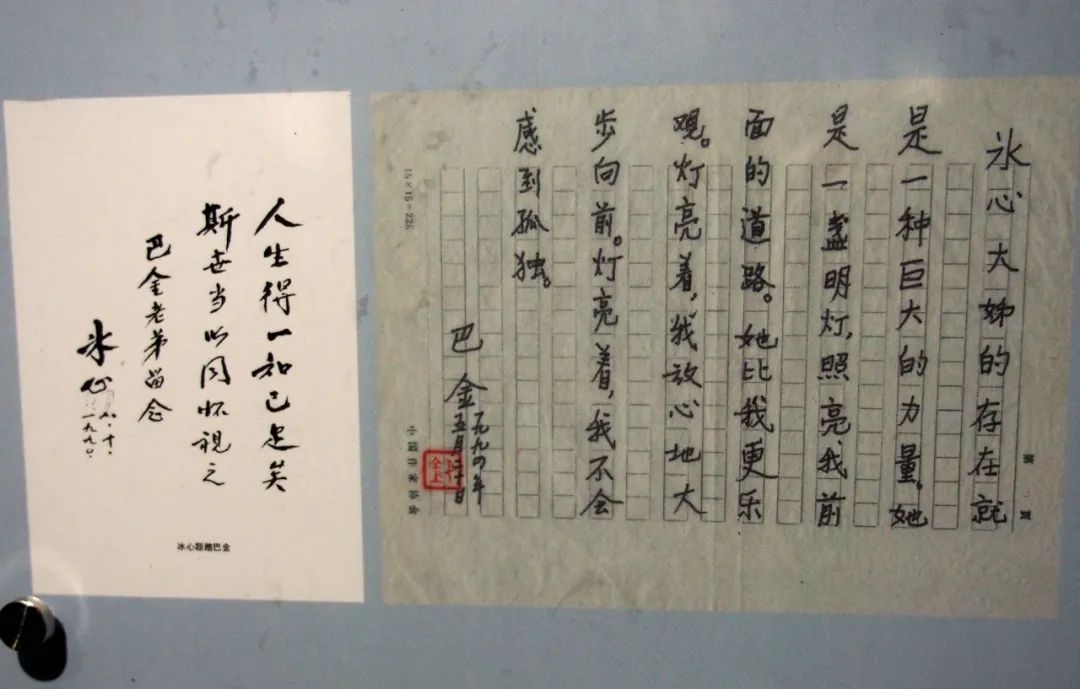 冰心大姊的存在就
是一种巨大的力量。她
是一盏明灯，照亮我前
面的道路。她比我更乐
观。灯亮着，我放心地大
步向前。灯亮着，我不会
感到孤独。
巴金
一九九四年
五月二十日
第 页
15×15=225
中国作家协会
人生得一知己足矣
斯世当以同怀视之
巴金老弟留念
冰心
六.十.
一九九〇.
冰心题赠巴金